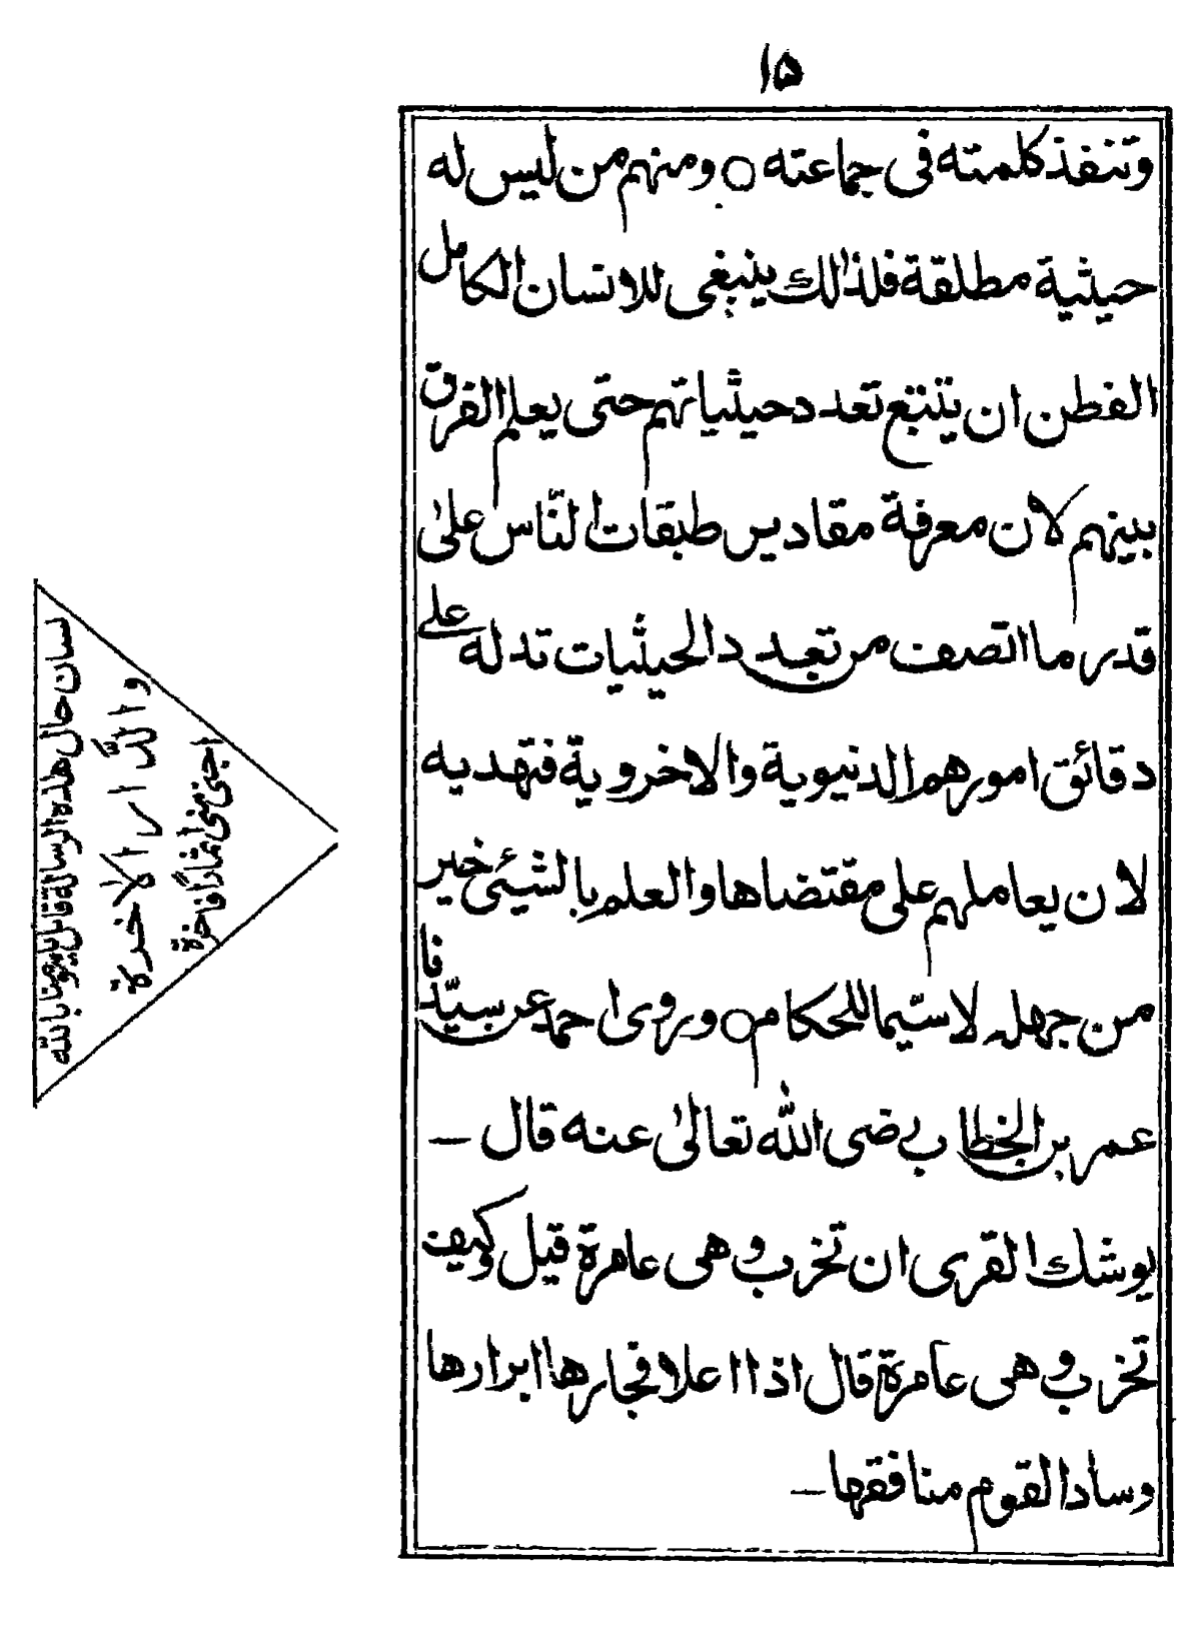 ۱۵
وتنفذ كلمته فى جماعته ○ ومنهم من ليس له
حيثية مطلقة فلذالك ينبغى للانسان الكامل
الفطن ان يتتبع تعدد حيثياتهم حتى يعلم الفرق
بينهم لان معرفة مقادير طبقات النّاس علىٰ
قدر ما اتصف من تعدد الحيثيات تدله على
دقائق امورهم الدنيوية والاخروية فتهديه
لان يعاملهم على مقتضاها والعلم بالشيئ خير
من جهله لا سيّما للحكام ○ وروى احمد عن سيّدنا
عمر بن الخطاب رضى الله تعالىٰ عنه قال –
يوشك القرى ان تخرب وهى عامرة قيل وكيف
تخرب وهى عامرة قال اذا اعلا فجارها ابرارها
وساد القوم منافقها –
لسان حال هذه الرسالة قائل يا مومنا بالله
والدّار الاخرة
اجنى منى اثمارًا فاخرة